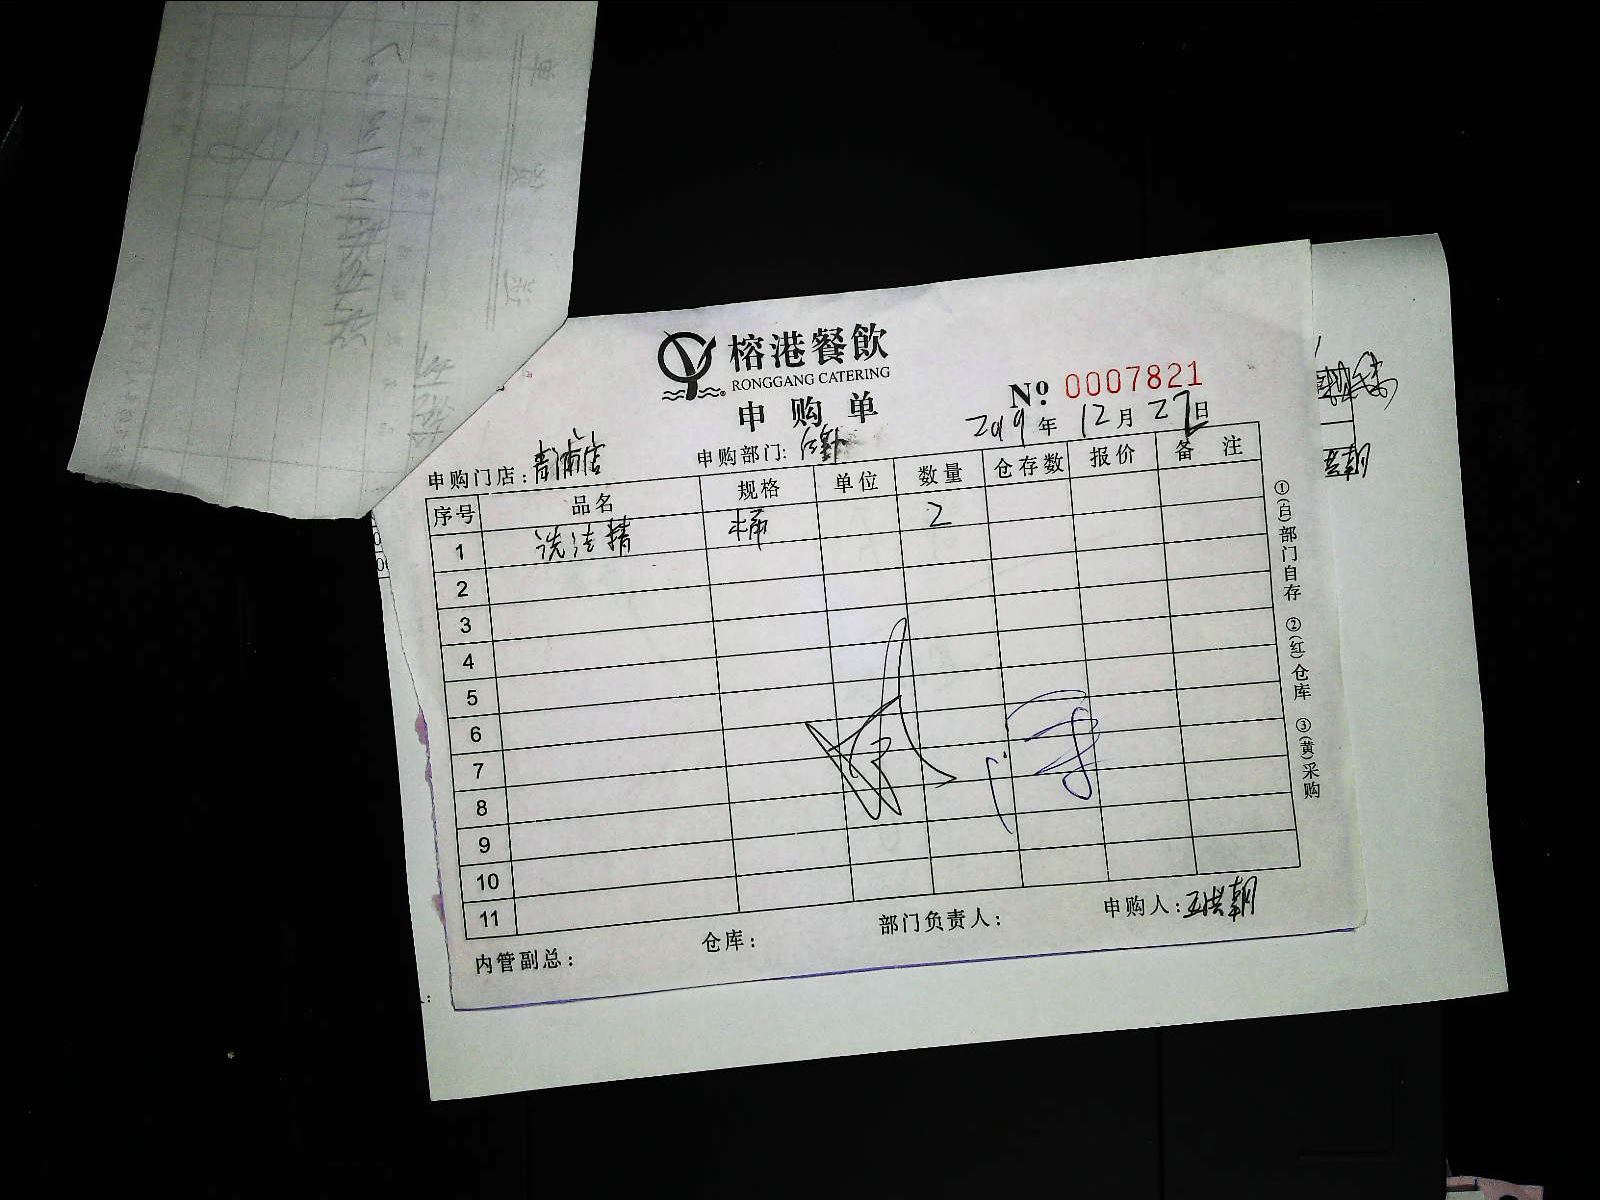 榕港餐飲
RONGGANG CATERING
申购单
№ 0007821
2019年12月27日
申购门店:青浦店 申购部门:
序号 品名 规格 单位 数量 仓存数 报价 备注
1 洗洁精 桶 2
2
3
4
5
6
7
8
9
10
11
内管副总: 仓库: 部门负责人: 申购人:王洪朝
①(白)部门自存 ②(红)仓库 ③(黄)采购